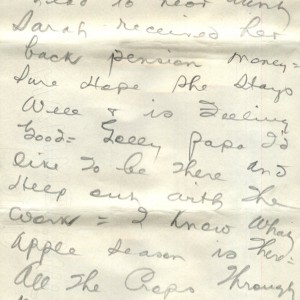 to hear Aunty
Sarah received her
back pension money =
Sure Hope She Stays
Well & is Feeling
Good = Golly Papa I'd
like to be there and
Help out with the
work = I Know What
Apple Season is There =
All the Crops Through